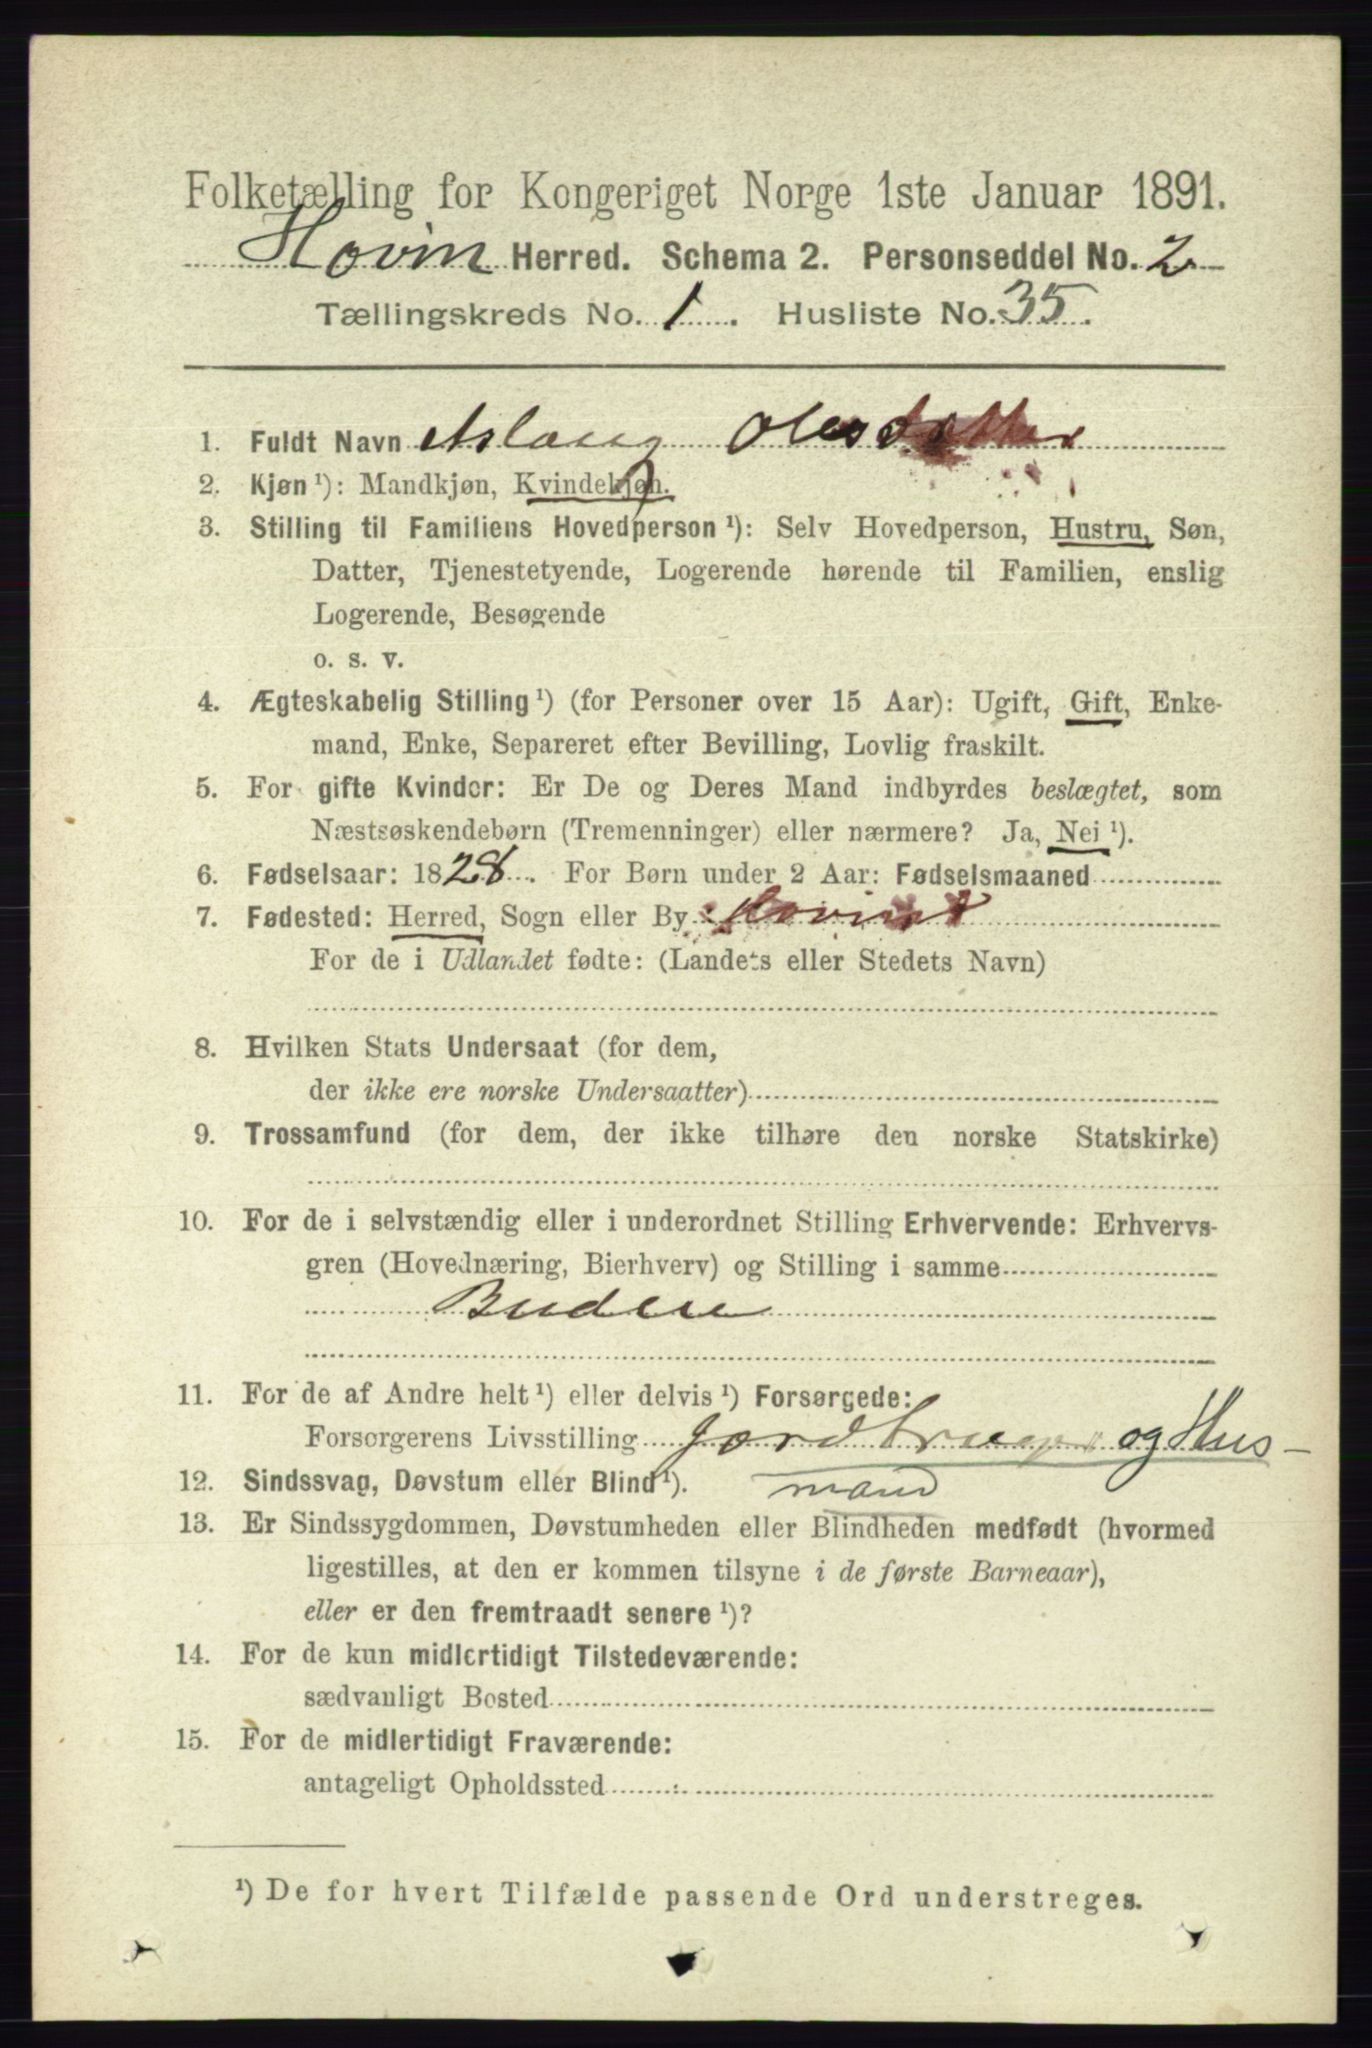 Folketælling for Kongeriget Norge 1ste Januar 1891.
Hovin Herred. Schema 2. Personseddel No. 2
Tællingskreds No. 1. Husliste No. 35.
1. Fuldt Navn Aslaug Olesdatter
2. Kjøn ¹): Mandkjøn, Kvindekjøn.
3. Stilling til Familiens Hovedperson ¹): Selv Hovedperson, Hustru, Søn,
Datter, Tjenestetyende, Logerende hørende til Familien, enslig
Logerende, Besøgende
o. s. v.
4. Ægteskabelig Stilling ¹) (for Personer over 15 Aar): Ugift, Gift, Enke-
mand, Enke, Separeret efter Bevilling, Lovlig fraskilt.
5. For gifte Kvinder: Er De og Deres Mand indbyrdes beslægtet, som
Næstsøskendebørn (Tremenninger) eller nærmere? Ja, Nei ¹).
6. Fødselsaar: 1828. For Børn under 2 Aar: Fødselsmaaned
7. Fødested: Herred, Sogn eller By
For de i Udlandet fødte: (Landets eller Stedets Navn)
8. Hvilken Stats Undersaat (for dem,
der ikke ere norske Undersaatter)
9. Trossamfund (for dem, der ikke tilhøre den norske Statskirke)
10. For de i selvstændig eller i underordnet Stilling Erhvervende: Erhvervs-
gren (Hovednæring, Bierhverv) og Stilling i samme
Budeie
11. For de af Andre helt ¹) eller delvis ¹) Forsørgede:
Forsørgerens Livsstilling Jordbruger og Hus-
12. Sindssvag, Døvstum eller Blind ¹). mand
13. Er Sindssygdommen, Døvstumheden eller Blindheden medfødt (hvormed
ligestilles, at den er kommen tilsyne i de første Barneaar),
eller er den fremtraadt senere ¹)?
14. For de kun midlertidigt Tilstedeværende:
sædvanligt Bosted
15. For de midlertidigt Fraværende:
antageligt Opholdssted
¹) De for hvert Tilfælde passende Ord understreges.